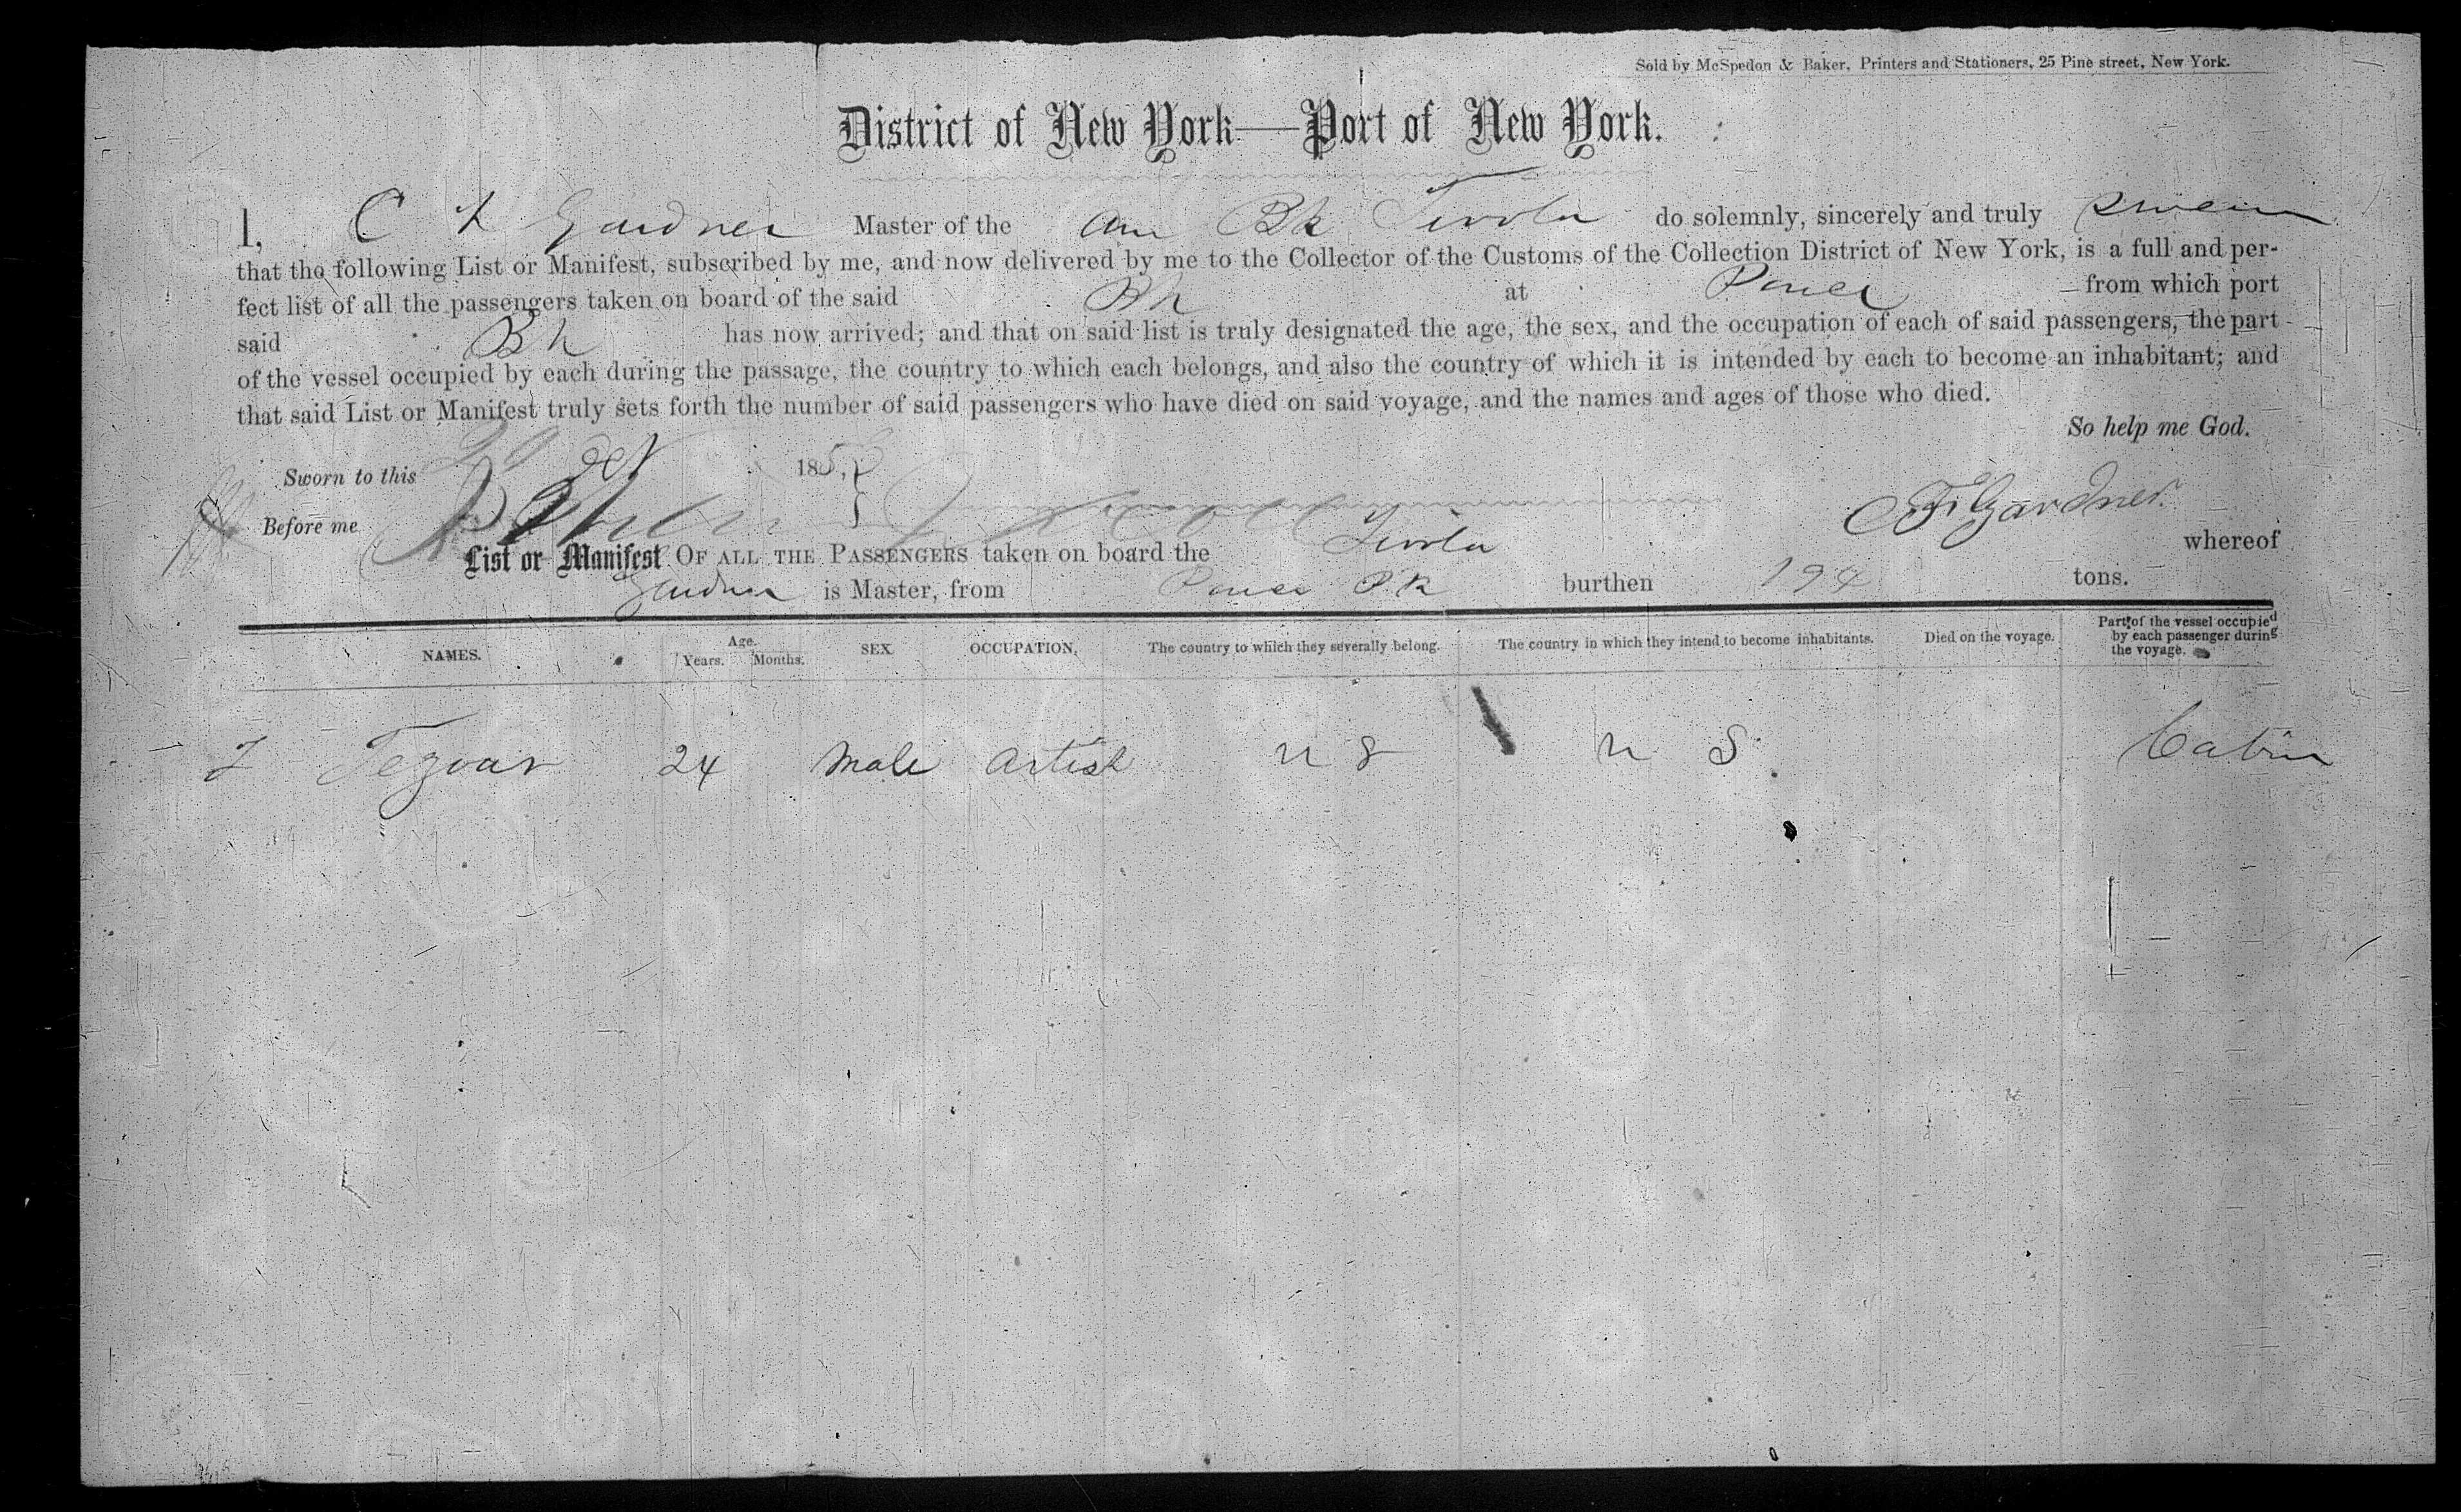 Sold by McSpedon & Baker, Printers and Stationers, 25 Pine street, New York.
District of New York—Port of New York.
I, C F Gardner Master of the Am Bk Tivola do solemnly, sincerely and truly swear
that the following List or Manifest, subscribed by me, and now delivered by me to the Collector of the Customs of the Collection District of New York, is a full and per-
fect list of all the passengers taken on board of the said Bk at Ponce from which port
said Bk has now arrived; and that on said list is truly designated the age, the sex, and the occupation of each of said passengers, the part
of the vessel occupied by each during the passage, the country to which each belongs, and also the country of which it is intended by each to become an inhabitant; and
that said List or Manifest truly sets forth the number of said passengers who have died on said voyage, and the names and ages of those who died.
So help me God.
Sworn to this 185
Before me
C F Gardner
List or Manifest OF ALL THE PASSENGERS taken on board the Tivola whereof
Gardner is Master, from Ponce P R burthen 194 tons.
NAMES. Age. Years. Months. SEX. OCCUPATION. The country to which they severally belong. The country in which they intend to become inhabitants. Died on the voyage. Part of the vessel occupied by each passenger during the voyage.
24 Male Artist U S U S Cabin